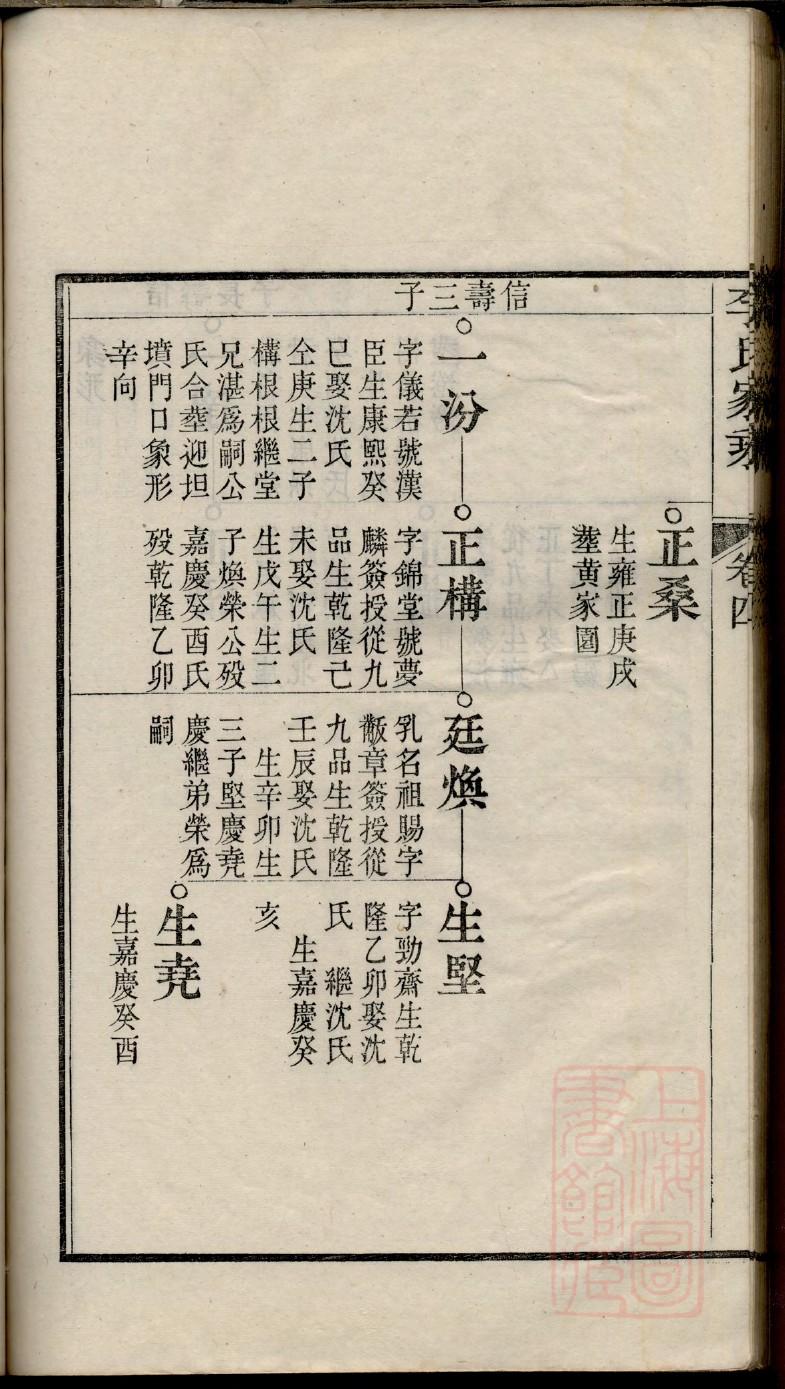 李氏家乘
卷四
信壽三子
正桑
生雍正庚戌
塟黄家園
一汾
字儀若號漢
臣生康熙癸
巳娶沈氏
仝庚生二子
構根根繼堂
兄湛爲嗣公
氏合塟迎坦
墳門口象形
辛向
正構
字錦堂號夢
麟簽授從九
品生乾隆己
未娶沈氏
生戊午生二
子煥榮公殁
嘉慶癸酉氏
殁乾隆乙卯
廷煥
乳名祖賜字
黻章簽授從
九品生乾隆
壬辰娶沈氏
生辛卯生
三子堅慶堯
慶繼弟榮爲
嗣
生堅
字勁齋生乾
隆乙卯娶沈
氏 繼沈氏
生嘉慶癸
亥
生堯
生嘉慶癸酉
上海圖
書館藏